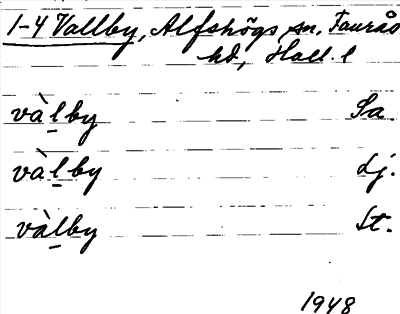 1-4 Vallby, Alfshögs sn, Faurås
hd, Hall. l
vàl̲by Sa
vàl̲by Lj.
vàl̲by St.
1948